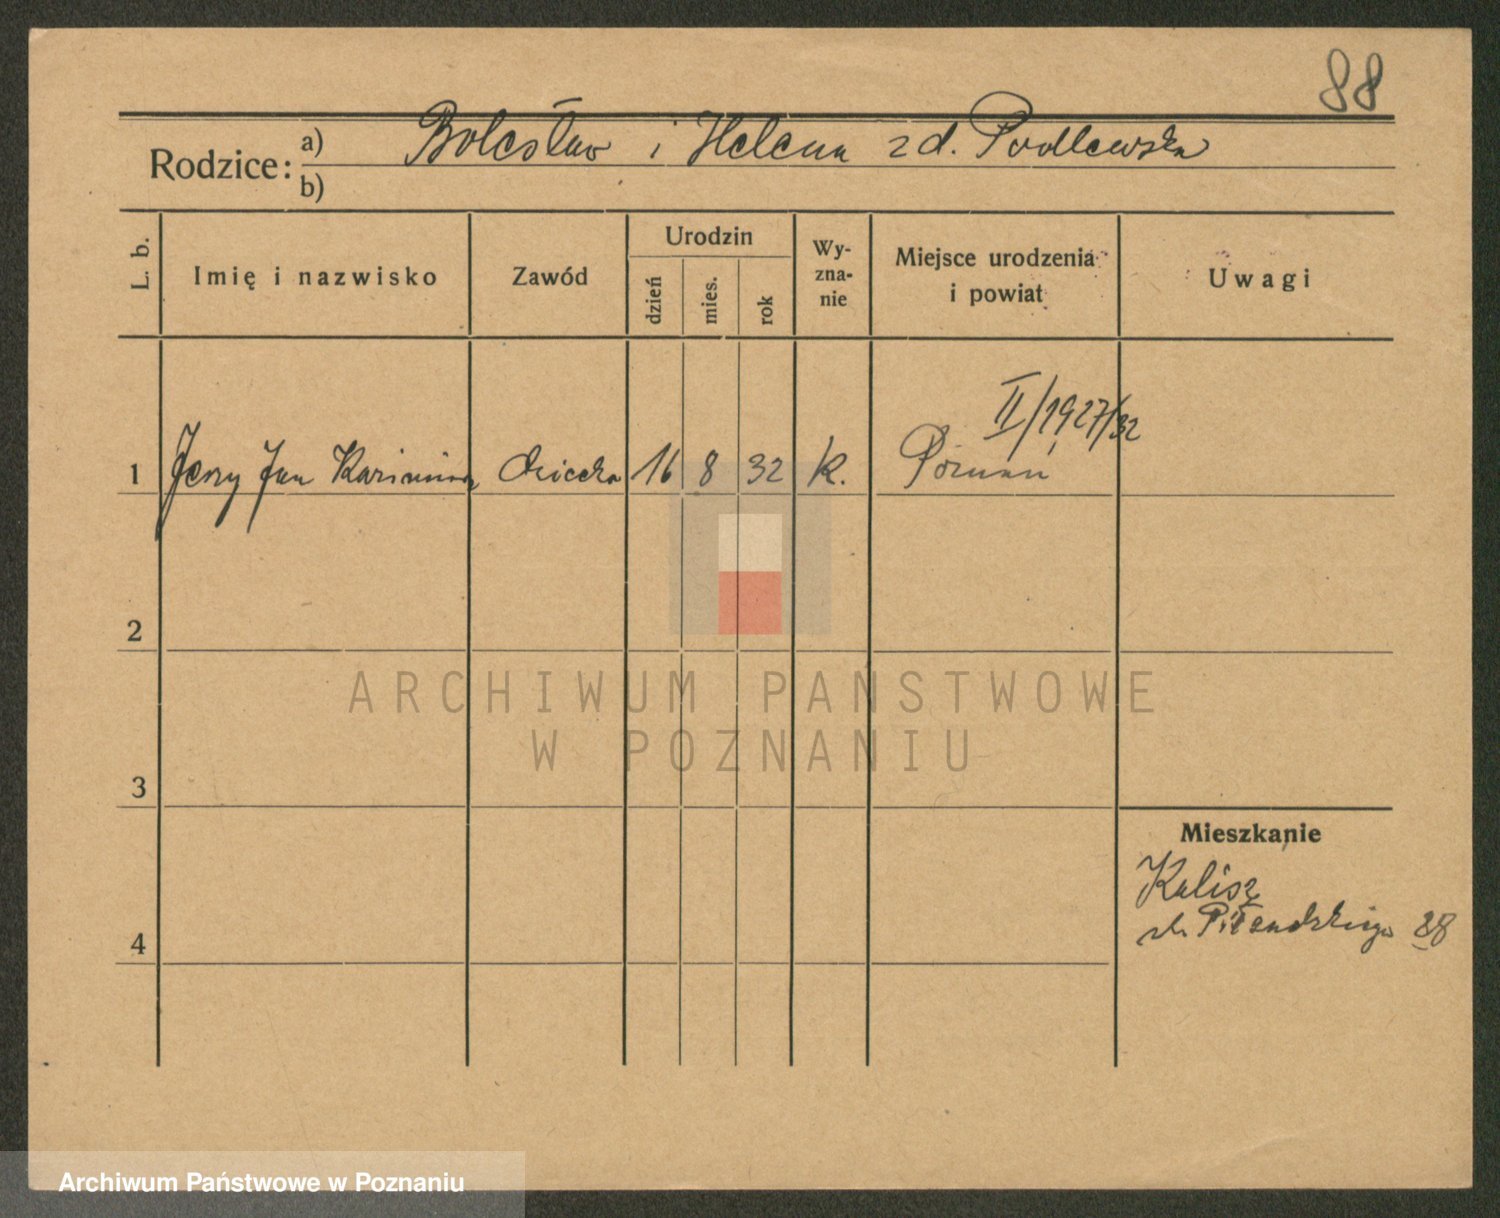 88
Rodzice: a) Bolesław i Helena z d. Podlewska
b)
L. b.
Imię i nazwisko
Zawód
Urodzin
dzień
mies.
rok
Wy-
zna-
nie
Miejsce urodzenia
i powiat
Uwagi
II/1927/32
1 Jerzy Jan Kazimierz dziecko 16 8 32 k. Poznań
2
ARCHIWUM PAŃSTWOWE
W POZNANIU
3
Mieszkanie
Kalisz
ul. Piłsudskiego 28
4
Archiwum Państwowe w Poznaniu